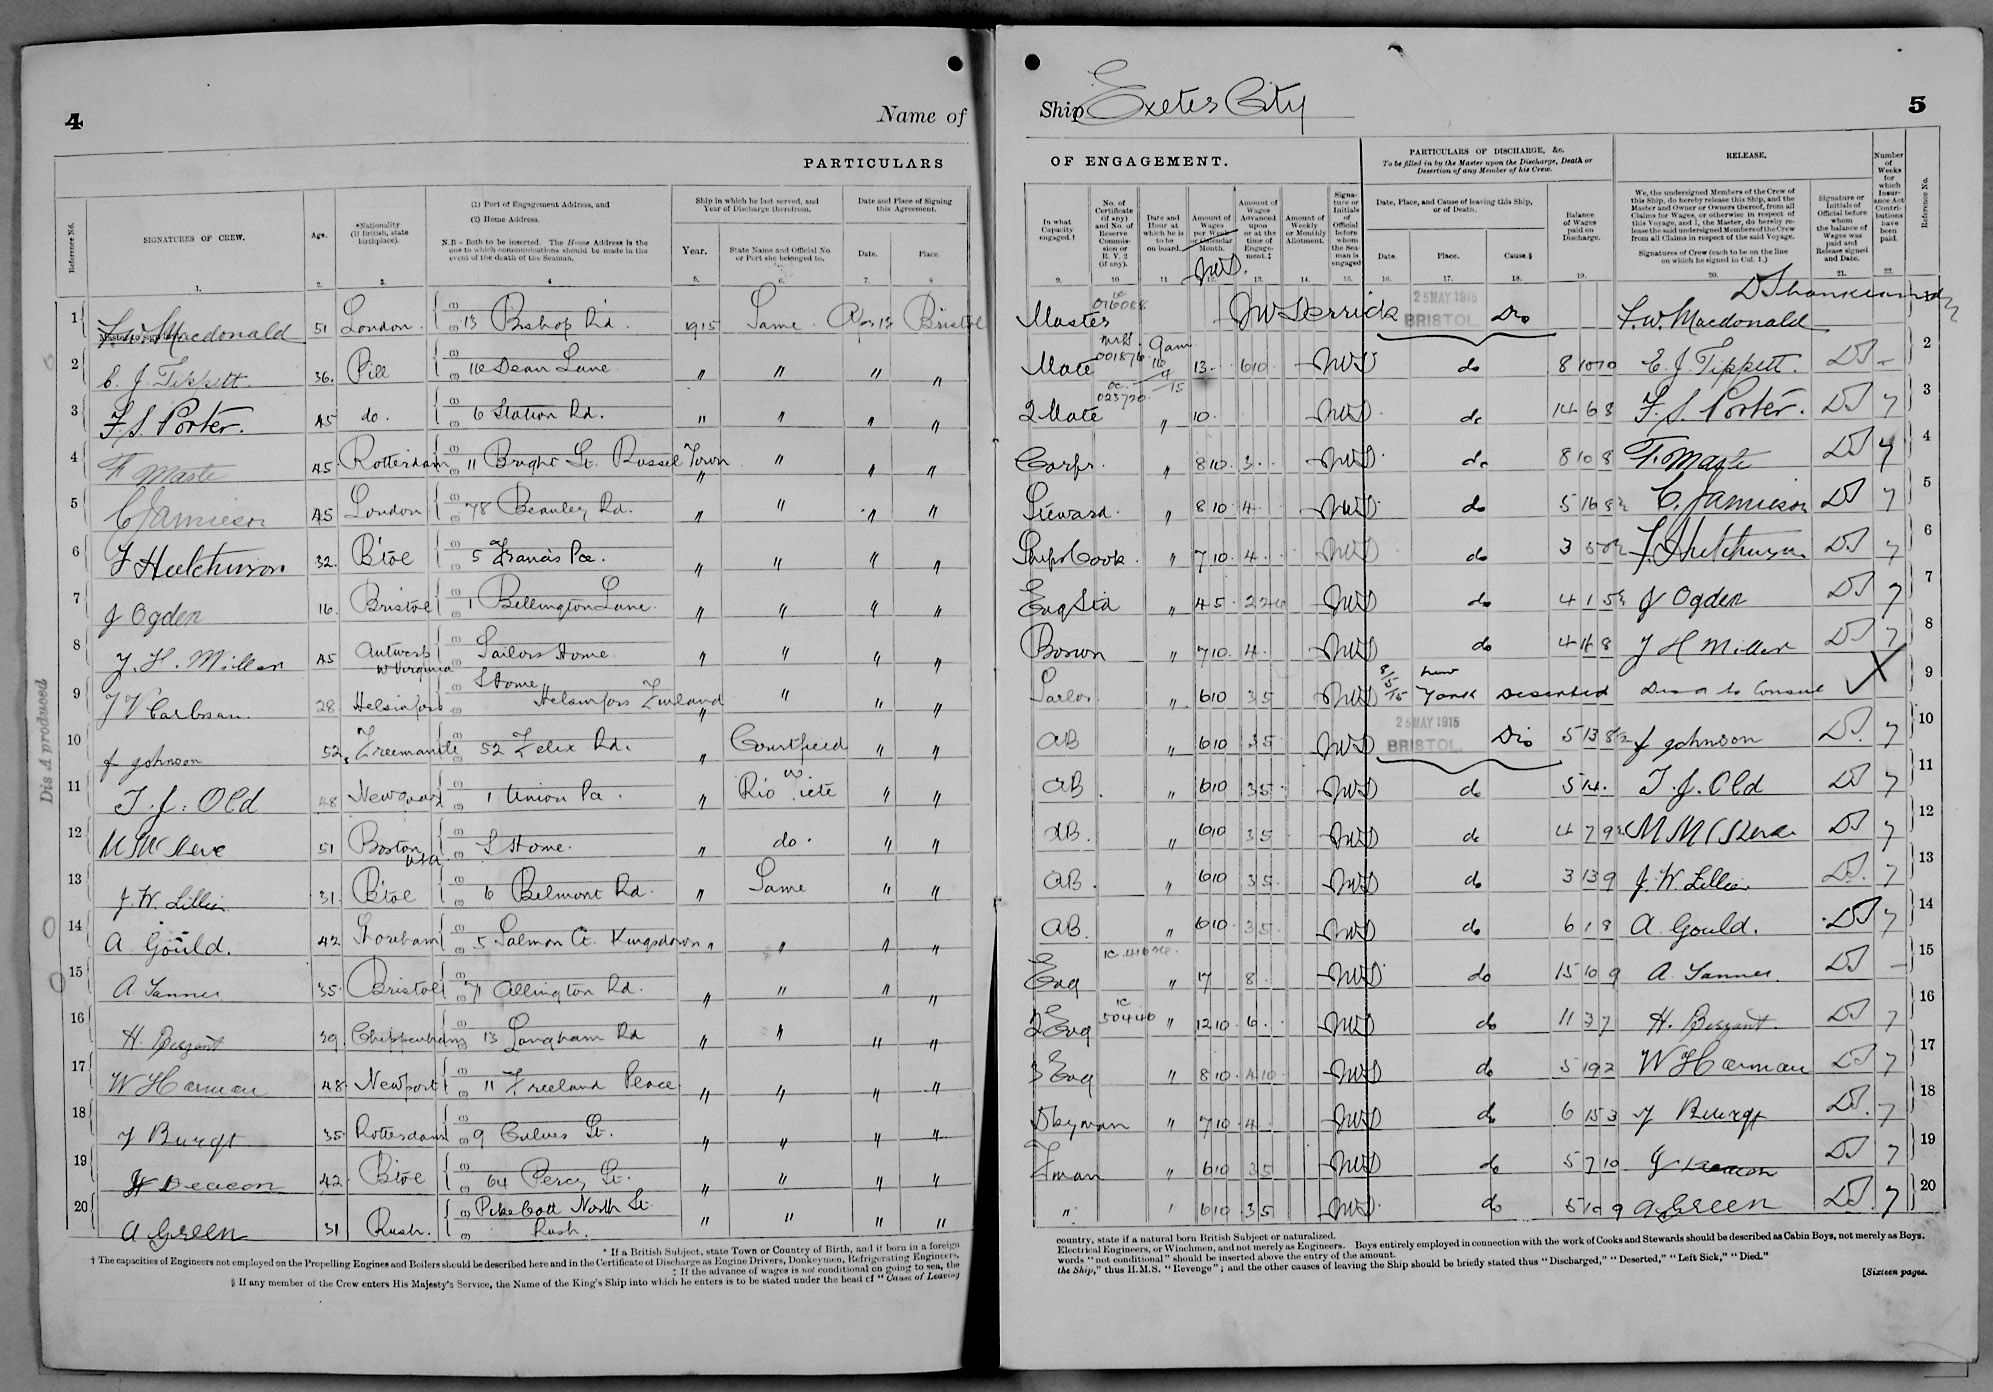 4
Name of
PARTICULARS
Reference No.
SIGNATURES OF CREW.
Age.
*Nationality (If British, state birthplace).
(1) Port of Engagement Address, and
(2) Home Address.
N.B – Both to be inserted. The Home Address is the one to which communications should be made in the event of the death of the Seaman.
Ship in which he last served, and Year of Discharge therefrom.
Year.
State Name and Official No. or Port she belonged to.
Date and Place of Signing this Agreement.
Date.
Place.
1. 2. 3. 4 5. 6. 7. 8
1 Macdonald 51 London. 13 Bishop Rd. 1915 Same Bristol
2 E. J. Tippett. 36. Pill Dean Lane " " " "
3 F. S. Porter. 45 do. 6 Station Rd. " " " "
4 45. Rotterdam 11 Bright St. Russel Town " " " "
5 C Jamieson 45 London 78 Beauley Rd. " " " "
6 F Hutchinson 32. B'tol 5 Francis Pce. " " " "
7 J Ogden 16. Bristol 1 Bellington Lane. " " " "
8 J. H. Miller 45 Antwerp Sailors Home. " " " "
W Virginia
9 28. Helsinfors S Home, Helsinfors Finland " " " "
10 J Johnson 52, Freemantle 52 Felix Rd. " Courtfield " "
11 T. J. Old 48 Newquay 1 Union Pa. " Rio " "
12 51 Boston USA. S Home. " do. " "
13 J. W. Lillie 31. B'tol 6 Belmont Rd. " Same " "
14 A Gould. 42 Shoreham 5 Salmon Ct. Kingsdown " " " "
15 A Tanner 35. Bristol 71 Allington Rd. " " " "
16 H. Bezzant 39 Chippenham 13 Langham Rd " " " "
17 W Harman 48. Newport 11 Freeland Place " " " "
18 35. Rotterdam 9 Culver St. " " " "
19 J Deacon 42. B'tol 64 Percy St. " " " "
20 A Green 31 Rush. North St. Rush. " " " "
Dis A produced
* If a British Subject, state Town or Country of Birth, and if born in a foreign
† The capacities of Engineers not employed on the Propelling Engines and Boilers should be described here and in the Certificate of Discharge as Engine Drivers, Donkeymen, Refrigerating Engineers,
‡ If the advance of wages is not conditional on going to sea, the
§ If any member of the Crew enters His Majesty's Service, the Name of the King's Ship into which he enters is to be stated under the head of "Cause of Leaving
Ship Exeter City
5
OF ENGAGEMENT.
PARTICULARS OF DISCHARGE, &c.
To be filled in by the Master upon the Discharge, Death or Desertion of any Member of his Crew.
RELEASE.
In what Capacity engaged.†
No. of Certificate (if any) and No. of Reserve Commission or R. V. 2 (if any).
Date and Hour at which he is to be on board.
Amount of Wages per Week or Calendar Month.
Amount of Wages Advanced upon or at the time of Engagement.‡
Amount of Weekly or Monthly Allotment.
Signature or Initials of Official before whom the Seaman is engaged
Date, Place, and Cause of leaving this Ship, or of Death.
Date.
Place.
Cause.§
Balance of Wages paid on Discharge.
We, the undersigned Members of the Crew of this Ship, do hereby release this Ship, and the Master and Owner or Owners thereof, from all Claims for Wages, or otherwise in respect of this Voyage, and I, the Master, do hereby release the said undersigned Members of the Crew from all Claims in respect of the said Voyage.
Signatures of Crew (each to be on the line on which he signed in Col. 1.)
Signature or Initials of Official before whom the balance of Wages was paid and Release signed and Date.
Number of Weeks for which Insurance Act Contributions have been paid.
Reference No.
9. 10 11 13. 14. 15. 16. 17. 18. 19. 20. 21. 22.
Master 016088 JW Derrick 25 MAY 1915 BRISTOL Dis Macdonald
Mate 001876 9am 13. 610 JWD do 8 10 10 E. J. Tippett. DS - 2
2 Mate 023720 " 10. JWD do 14 6 8 F. S. Porter. DS 7 3
Carpr. " 8 10. 3. JWD do 8 10 8 DS 7 4
Steward. " 8 10. 4. JWD do 5 16 C. Jamieson DS 7 5
Ships Cook. " 7 10. 4. JWD do 3 F. Hutchinson DS 7 6
" 45. JWD do 4 1 5 J Ogden DS 7 7
Bosun " 7 10. 4. JWD do 4 16 8 J H Miller DS 7 8
Sailor " 6 10 35 JWD 8/5/15 New York Deserted Dis A to Consul X 9
AB " 6 10 35 JWD 25 MAY 1915 BRISTOL Dis 5 13 8 J Johnson DS. 7 10
AB. " 6 10 35. JWD do 5 14. T. J. Old DS 7 11
AB. " 6 10 35 JWD do 4 7 9 DS 7 12
AB. " 6 10 35. JWD do 3 13 9 J. W Lillie DS. 7 13
AB. " 6 10. 35. JWD do 6 1 8 A Gould. DS 7 14
Eng " 17 8. JWD do 15 10 9 A. Tanner DS - 15
2 Eng 50440 " 12 10. 6. JWD do 11 3 7 H. Bezzant. DS 7 16
3 Eng " 8 10. 4 10. JWD do 5 19 2 W Harman DS 7 17
Dkyman " 7 10. 4. JWD do 6 15 3 DS. 7 18
Fman " 6 10 35 JWD do 5 7 10 J Deacon DS 7 19
" " 6 10 35 JWD. do 5 10 9 A Green DS. 7 20
country, state if a natural born British Subject or naturalized.
Electrical Engineers, or Winchmen, and not merely as Engineers. Boys entirely employed in connection with the work of Cooks and Stewards should be described as Cabin Boys, not merely as Boys.
words "not conditional" should be inserted above the entry of the amount.
the Ship," thus H.M.S. "Revenge"; and the other causes of leaving the Ship should be briefly stated thus "Discharged," "Deserted," "Left Sick," "Died."
[Sixteen pages.